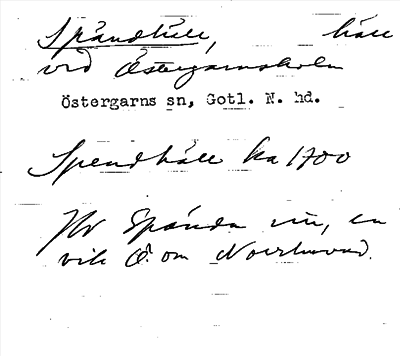 Spåndhäll, häll
vid Östergarnsholm
Östergarns sn, Gotl. N. hd.
Spendhäll ka 1700
Hr Spånda vik, en
vik Ö. om